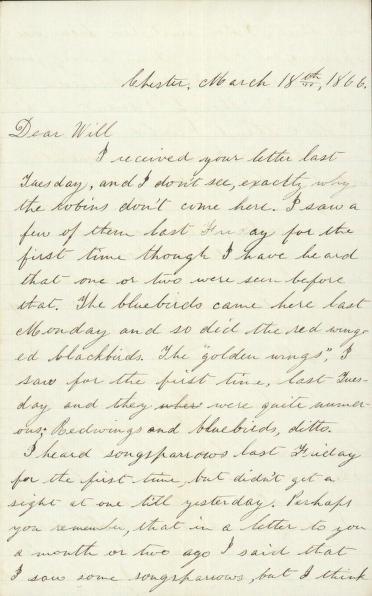 Chester, March 18th, 1866.
Dear Will
I received your letter last
Tuesday, and I don't see, exactly, why
the robins don't come here. I saw a
few of them last Friday for the
first time though I have heard
that one or two were seen before
that. The bluebirds came here last
Monday and so did the red wing-
ed blackbirds. The "golden wings", I
saw for the first time, last Tues-
day and they were quite numer-
ous; Redwings and bluebirds, ditto.
I heard songsparrows last Friday
for the first time, but didn't get a
sight at one till yesterday. Perhaps
you remember, that in a letter to you
a month or two ago I said that
I saw some songsparrows, but I think